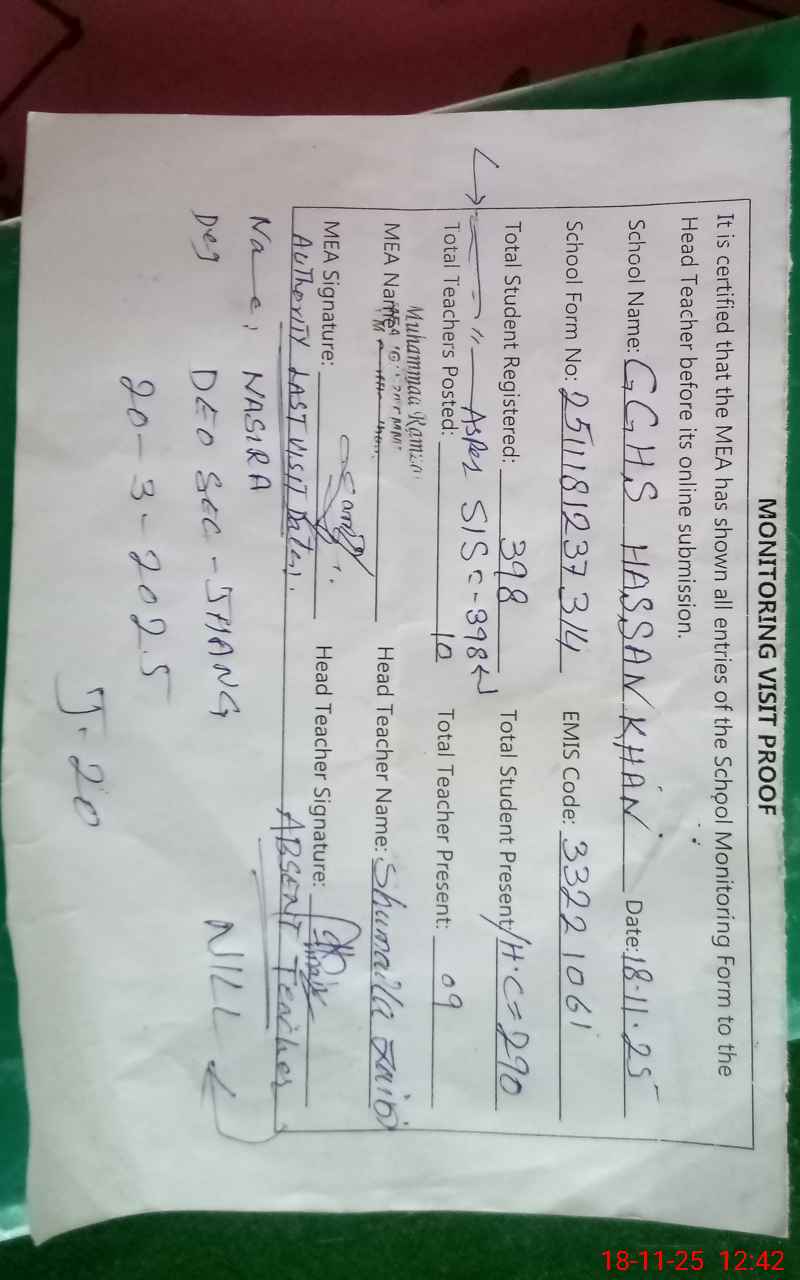 MONITORING VISIT PROOF
It is certified that the MEA has shown all entries of the School Monitoring Form to the
Head Teacher before its online submission.
School Name: GGHS HASSAN KHAN Date: 18-11-25
School Form No: 2511181237314 EMIS Code: 33221061
Total Student Registered: 398 Total Student Present/H.C = 290
As per SIS = 398
Total Teachers Posted: 10 Total Teacher Present: 09
Muhammad
MEA Name: Head Teacher Name: Shumaila
MEA Signature: Head Teacher Signature:
AUTHORITY LAST VISIT Date). ABSENT Teacher
Name: NASIRA
NILL
Deg DEO SEC - JHANG
20-3-2025
J-20
18-11-25 12:42